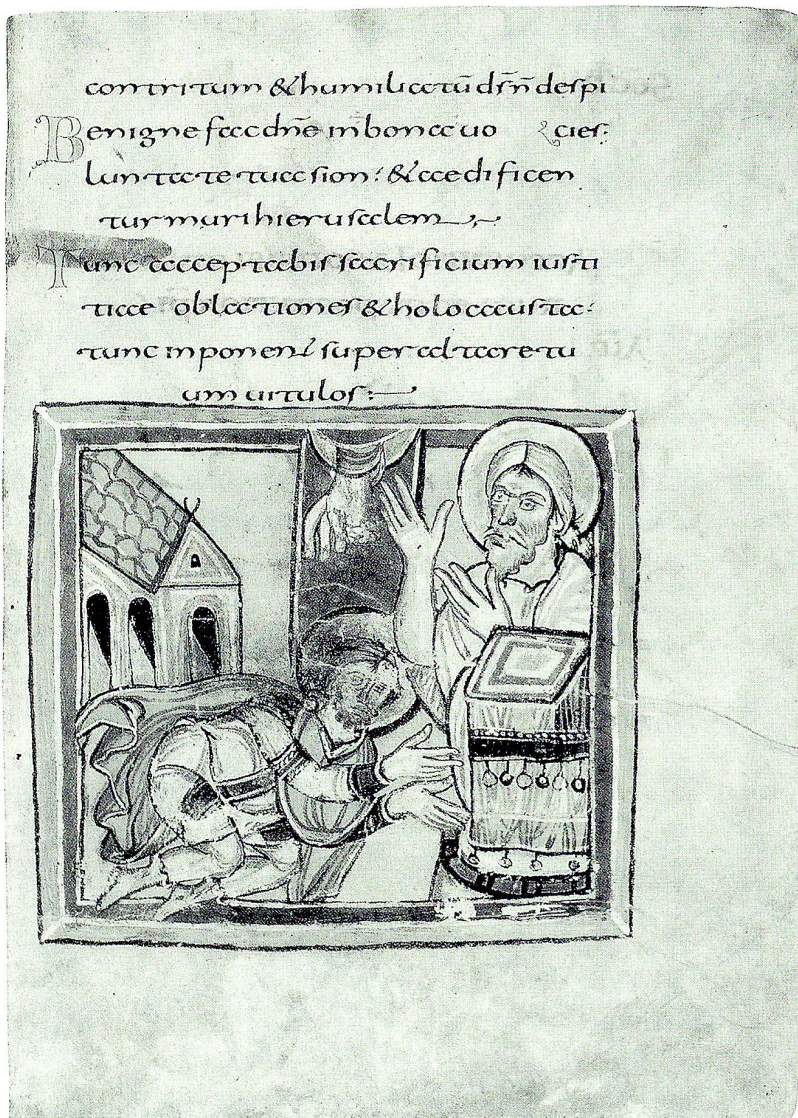 contritum & humiliatū d̄s n̄ despi
Benigne fac dn̄e in bona uo cies:
luntate tua sion: & aedificen
tur muri hierusalem
Tunc acceptabis sacrificium iusti
tiae oblationes & holocausta:
tunc inponent super altare tu
um uitulos: